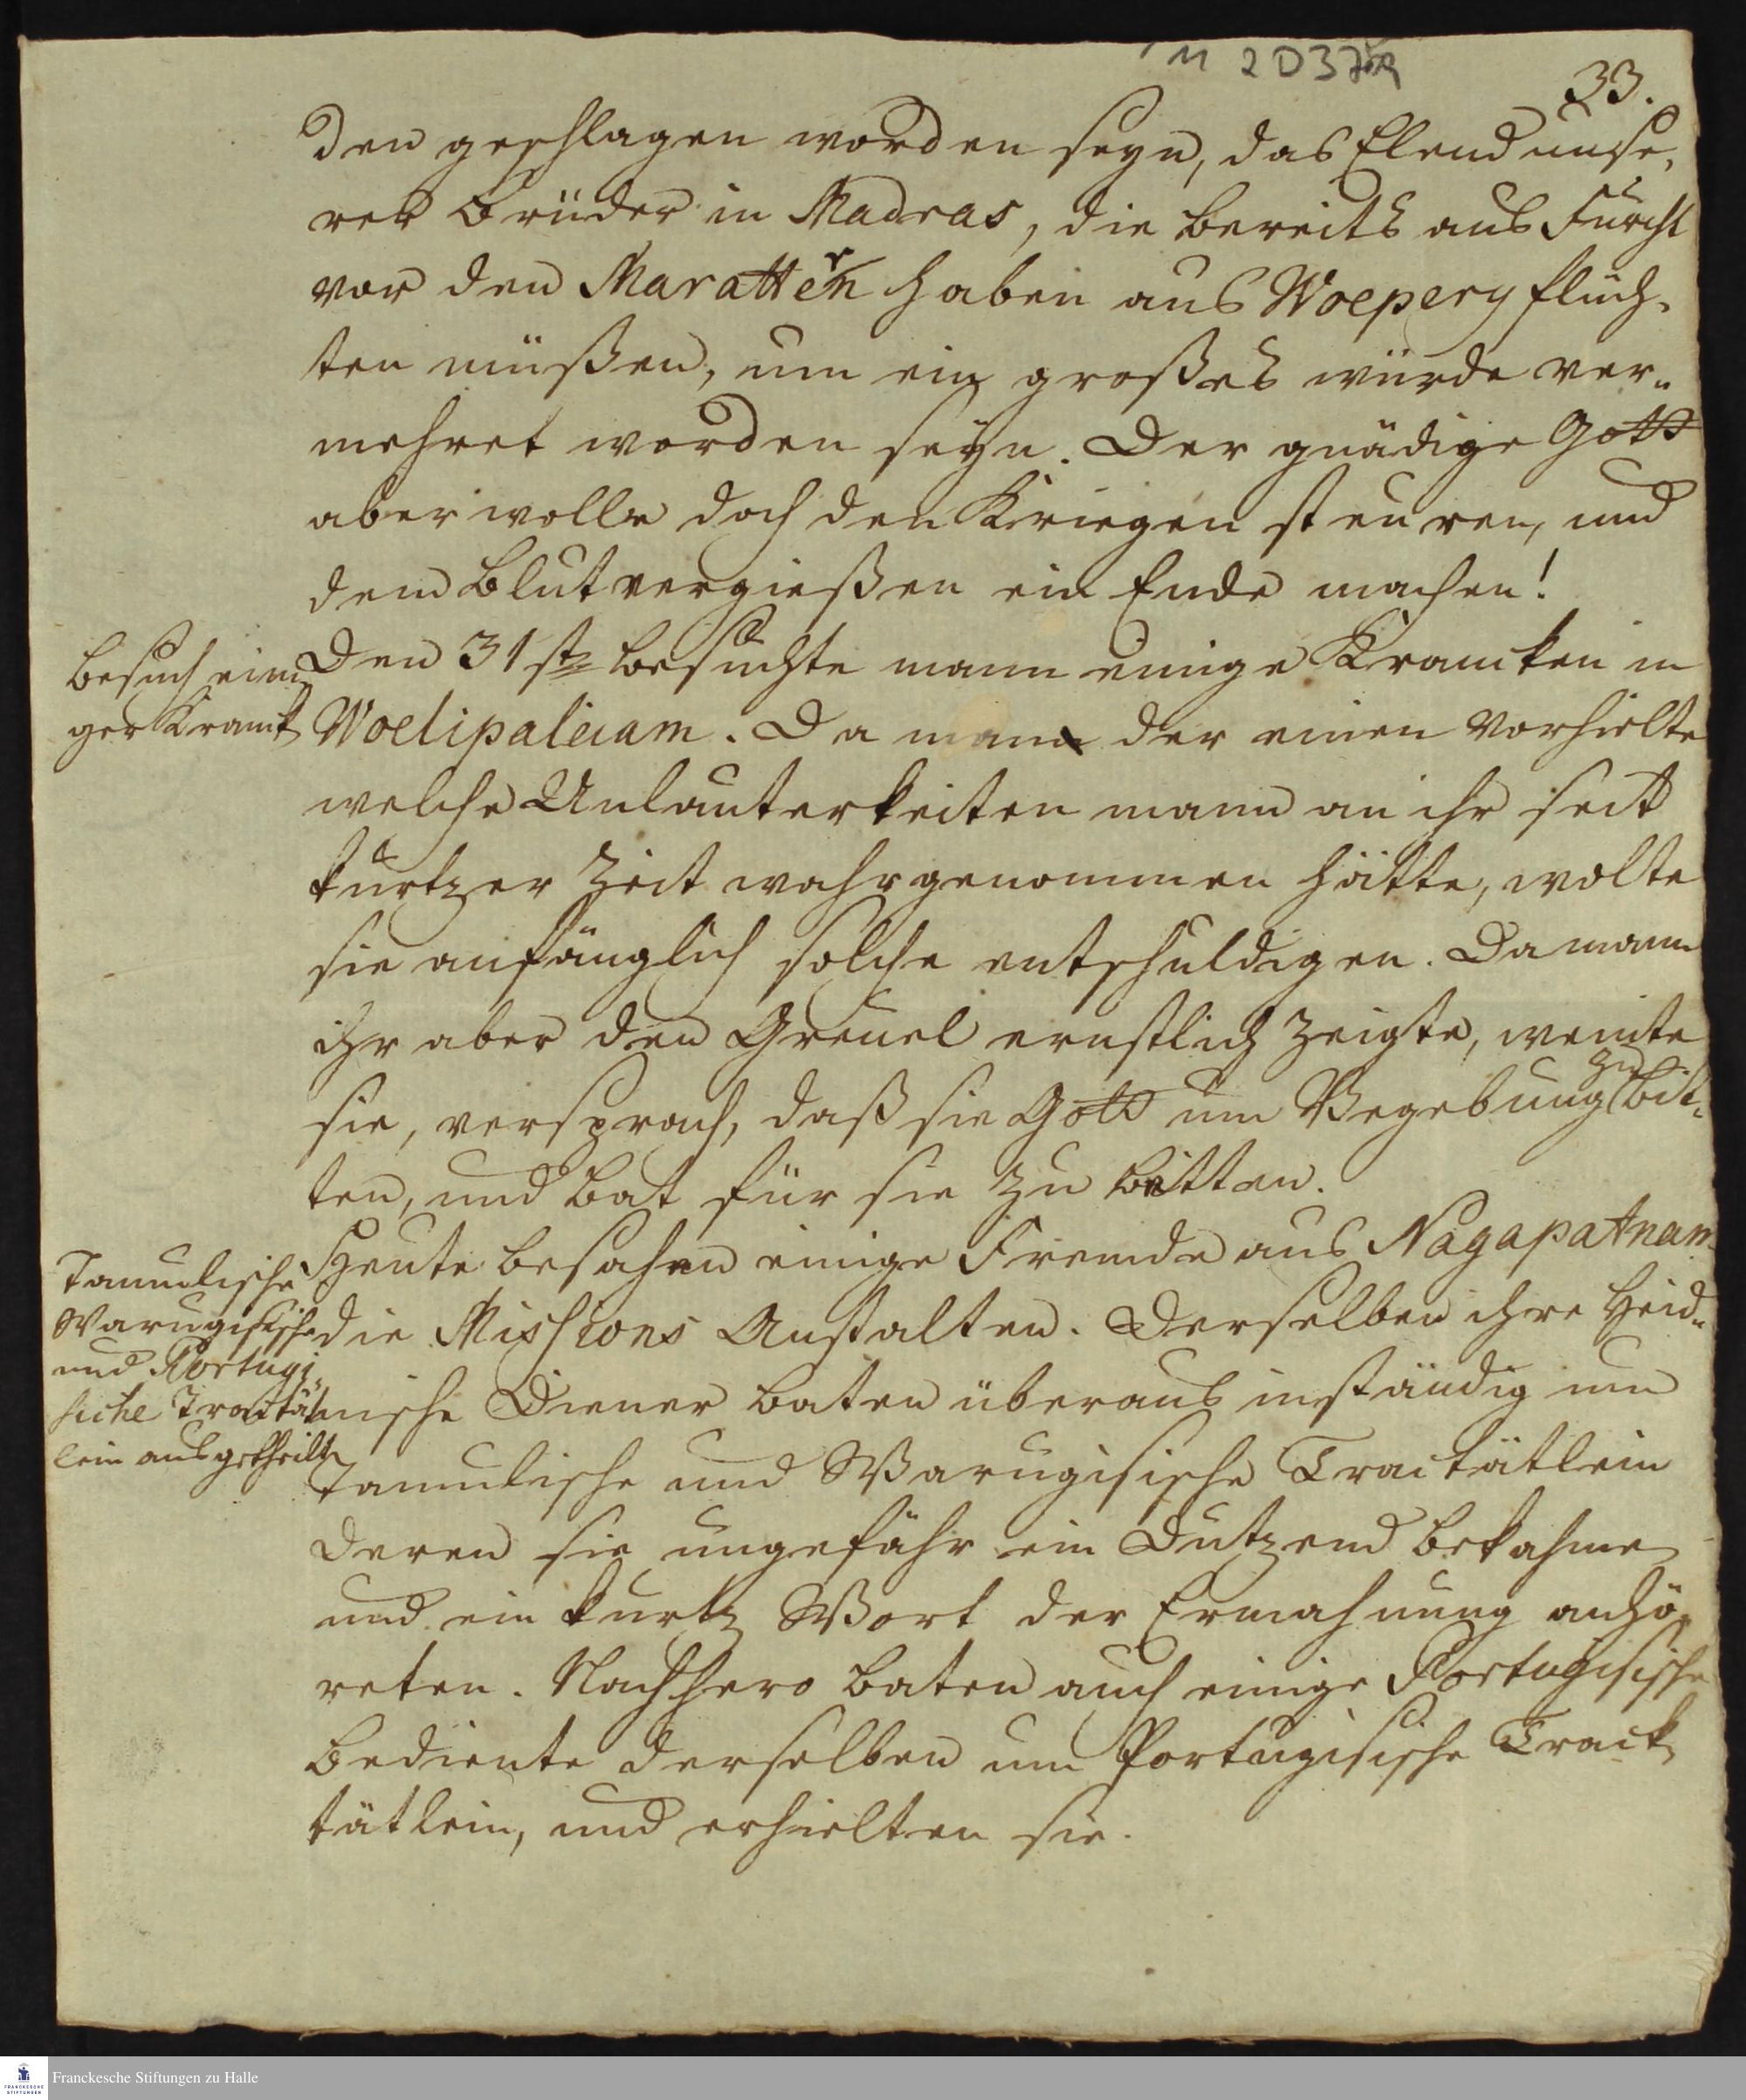 33.
den geschlagen worden seyn, das Elend unse,
rer Brüder in Madras, die bereits aus Furcht
vor den Maratten haben aus Woepery flüch,
ten müßen, um ein großes würde ver,,
mehret worden seyn. Der gnädige Gott
aber wolle doch den Kriegen steuren, und
dem Blutvergießen ein Ende machen!
Besuch eini
ger Kranck
Den 31ste besuchte mann einige Krancken in
Woelipaleiam. Da mann der einen vorhielte
welche Unlauterkeiten mann an ihr seit
kurtzer Zeit wahrgenommen hätte, wolte
sie anfänglich solche entschuldigen. Da mann
ihr aber den Greuel ernstlich zeigte, weinte
sie, versprach, daß sie Gott um Vegebung zu bit,
ten, und bat für sie zu bitten.
Tamulische
Warugisische
und Portugi,
sische Tractät
lein ausgetheilt
Heute besahen einige Fremde aus Nagapatnam
die Missions Anstalten. Derselben ihre Heid,,
nische Diener baten überaus inständig um
Tamulische und Warugisische Tractätlein
deren sie ungefähr ein Dutzend bekahmen
und ein kurtz Wort der Ermahnung anhö,
reten. Nachhero baten auch einige Portugisische
Bediente derselben um Portugisische Track,
tätlein, und erhielten sie.
Franckesche Stiftungen zu Halle
FRANCKESCHE
STIFTUNGEN